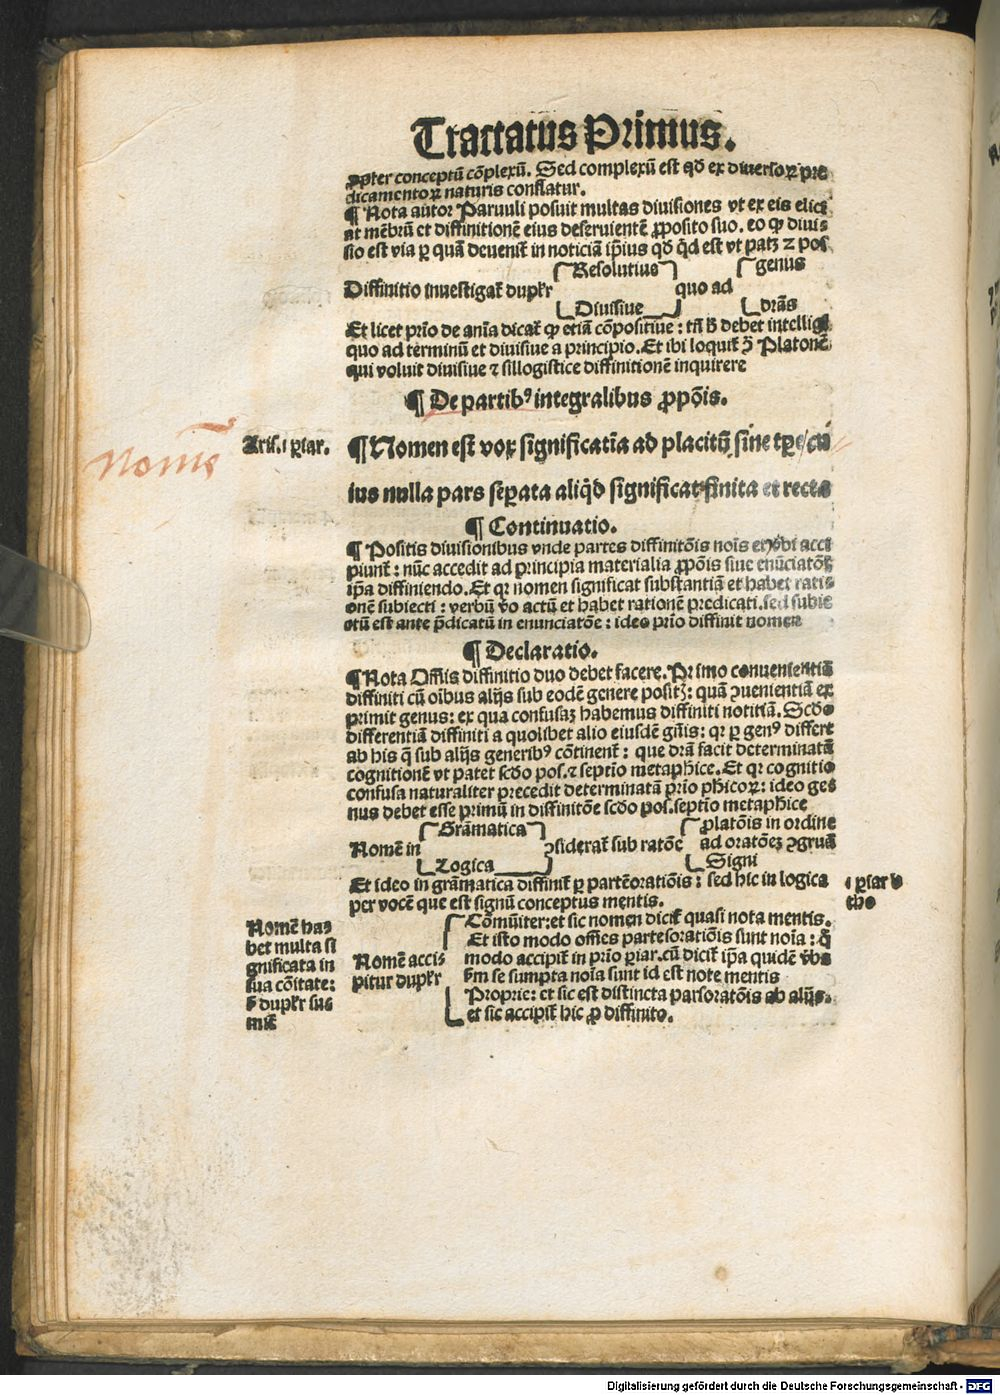 Tractatus Primus.
ꝓpter conceptū cōplexū. Sed complexū est qd̄ ex diuersoꝝ pre
dicamentoꝝ naturis conflatur.
¶ Nota autor Paruuli posuit multas diuisiones vt ex eis elici
at mēbrū et diffinitionē eius deseruientē ꝓposito suo. eo ꝙ diui⸗
sio est via ꝑ quā deuenit̄ in noticiā ip̄ius qd̄ q̇d est vt patꝫ ⁊ pos
Diffinitio inuestigat̄ duplr̄
Resolutiue
Diuisiue
quo ad
genus
drās
Et licet prīo de anīa dicat̄ ꝙ etiā cōpositiue: tn̄ h̄ debet intelligi
quo ad terminū et diuisiue a principio. Et ibi loquit̄ ꝯ̄ Platonē
qui voluit diuisiue ⁊ sillogistice diffinitionē inquirere
¶ De partibꝰ integralibus ꝓpōis.
Nomē
Aris. i ꝑiar.
¶ Nomen est vox significatīa ad placitū sine tꝑe/cu
ius nulla pars seꝑata aliq̇d significat/finita et recta
¶ Continuatio.
¶ Positis diuisionibus vnde partes diffinitōis noīs et v̄bi acci
piunt̄: nūc accedit ad principia materialia ꝓpōis siue enūciatōis
ip̄a diffiniendo. Et qꝛ nomen significat substantiā et habet rati⸗
onē subiecti: verbū v̄o actū et habet rationē predicati. sed subie
ctū est ante p̄dicatū in enunciatōe: ideo prīo diffinit nomen
¶ Declaratio.
¶ Nota Oīs diffinitio duo debet facere. Primo conuenientiā
diffiniti cū oībus alijs sub eodē genere positꝭ: quā ꝯuenientiā ex
primit genus: ex qua confusaꝫ habemus diffiniti notitiā. Scd̄o
differentiā diffiniti a quolibet alio eiusdē gn̄is: qꝛ ꝑ genꝰ differt
ab his q̄ sub alijs generibꝰ cōtinent̄: que drāꝫ facit determinatā
cognitionē vt patet scd̄o pos. ⁊ septīo metaph̄ice. Et qꝛ cognitio
confusa naturaliter precedit determinatā prīo ph̄icoꝝ: ideo ge⸗
nus debet esse primū in diffinitōe scd̄o pos. septīo metaph̄ice
Nomē in
Grāmatica
Logica
ꝯsiderat̄ sub ratōe
platōis in ordine
ad oratōeꝫ ꝯgruā
Signi
Et ideo in grāmatica diffinit̄ ꝑ partē orationis: sed hic in logica
per vocē que est signū conceptus mentis.
i ꝑiar h
tho
Nomē ha⸗
bet multa si
gnificata in
sua cōitate:
h̄ duplr̄ su⸗
mit̄
Nomē acci⸗
pitur duplr̄
Cōmūiter: et sic nomen dicit̄ quasi nota mentis.
Et isto modo om̄es partes orationis sunt noīa: q̄
modo accipit̄ in prīo ꝑiar. cū dicit̄ ip̄a quidē v̄ba
ẜm se sumpta noīa sunt id est note mentis
Proprie: et sic est distincta pars oratōis ab alijs.
et sic accipit̄ hic ꝓ diffinito.
Digitalisierung gefördert durch die Deutsche Forschungsgemeinschaft - DFG